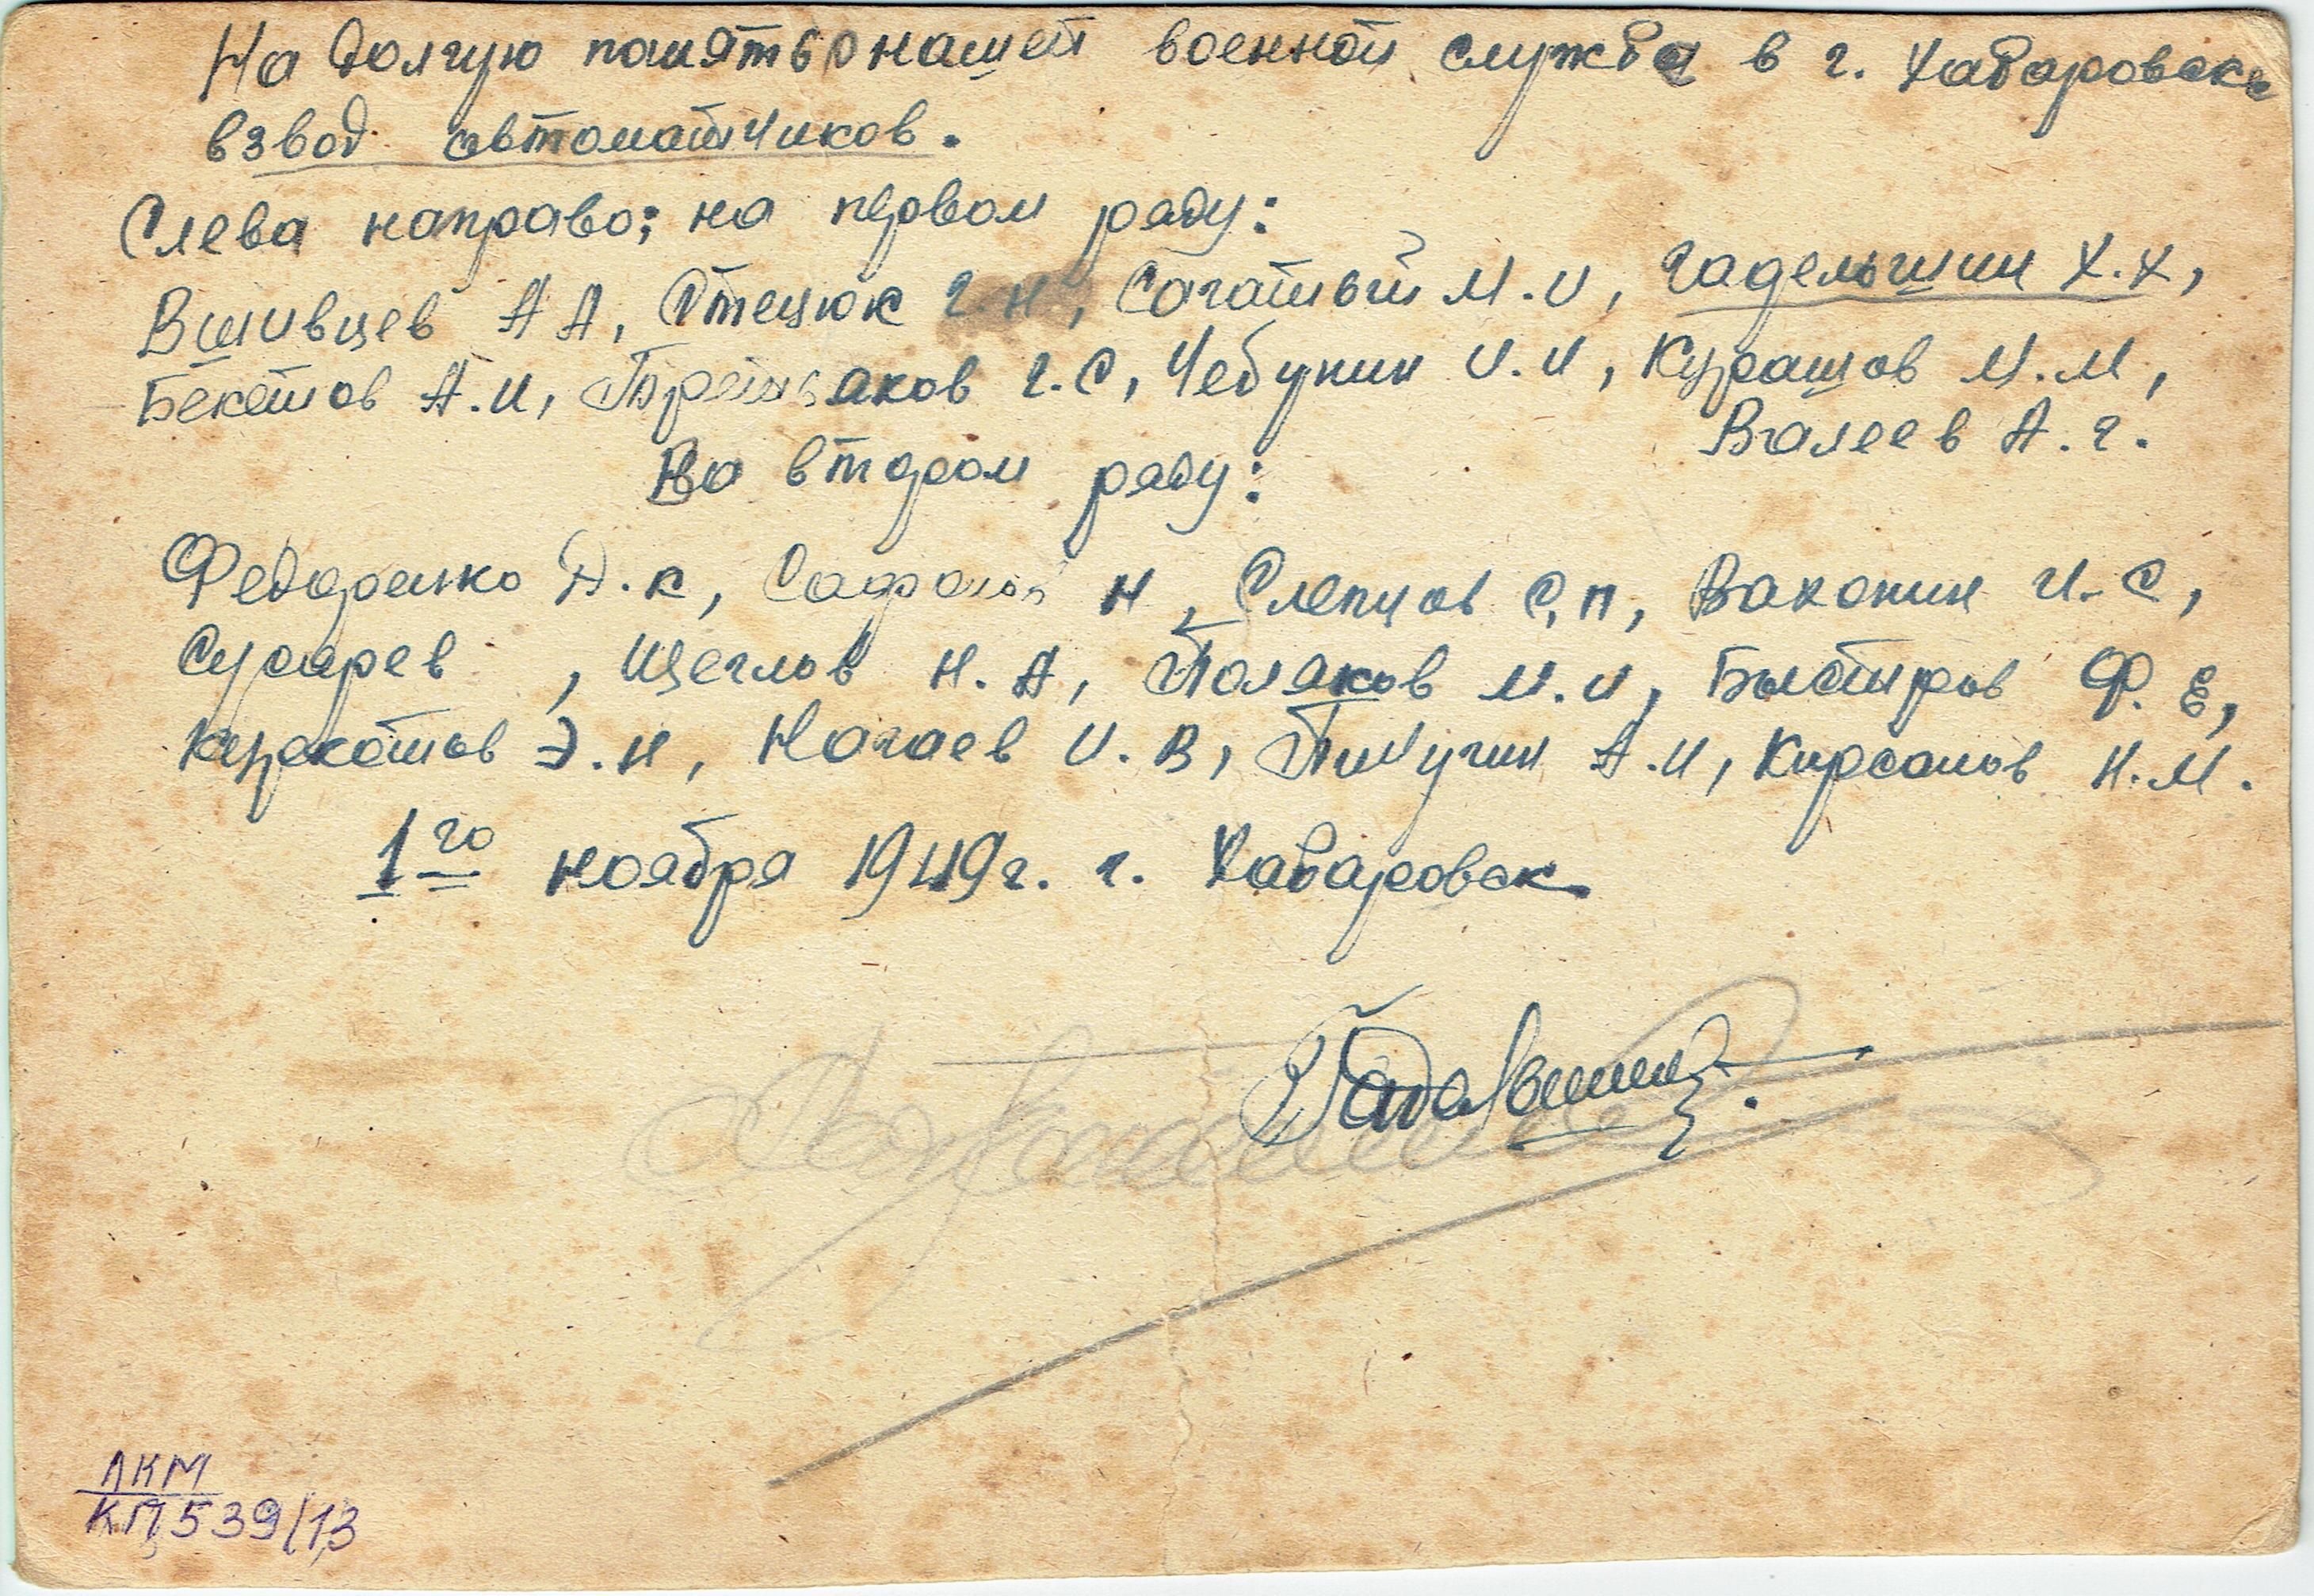 На долгую память о нашей военной службе в г. Хабаровске
взвод автоматчиков.
Слева направо; на первом ряду:
Вшивцев А А, Стецюк Г. Н, Согатый М. И, Гадельшин Х. Х,
Бекетов А. И, Третьяков Г. С, Чебунин И. И, Курашов М. М,
Валеев А. Г.
На втором ряду:
Федоренко Д. К, Н, Слепцов С. П, Вахонин И. С,
Щеглов Н. А, Поляков М. И, Быстыров Ф. Е,
Э. Н, Ногаев И. В, Пичугин А. И, Кирсанов Н. М.
1го ноября 1949 г. г. Хабаровск
ЛКМ
КП 539/13